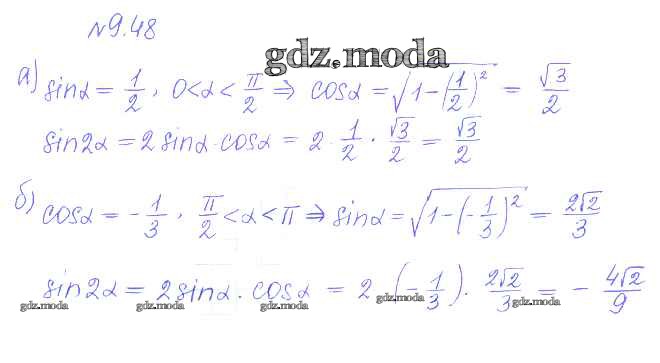 №9.48
gdz.moda
а) sinα = 1/2, 0<α<π/2 ⇒ cosα = √(1-(1/2)²) = √3/2
sin2α = 2 sinα·cosα = 2·1/2·√3/2 = √3/2
б) cosα = -1/3, π/2<α<π ⇒ sinα = √(1-(-1/3)²) = 2√2/3
sin2α = 2sinα·cosα = 2·(-1/3)·2√2/3 = -4√2/9
gdz.moda gdz.moda gdz.moda gdz.moda gdz.moda